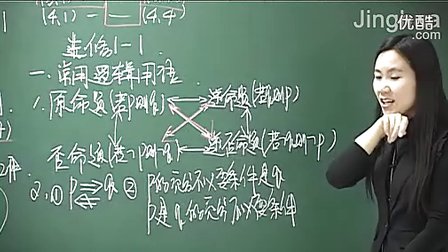 Jinghua
优酷
(4,1) - (4,4)
选修1-1
一、常用逻辑用语
1. 原命题(若p则q) 逆命题(若q则p)
否命题(若¬p则¬q) 逆否命题(若¬q则¬p)
2. ① p q ② p的充分不必要条件是q
p是q的充分不必要条件